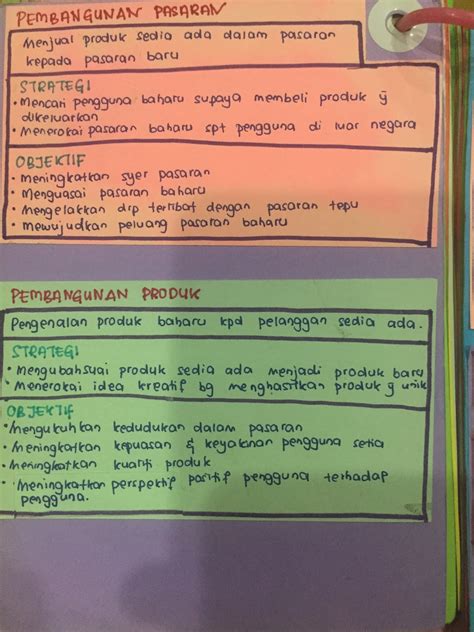 PEMBANGUNAN PASARAN
Menjual produk sedia ada dalam pasaran
kepada pasaran baru
STRATEGI
• Mencari pengguna baharu supaya membeli produk yg
dikeluarkan
• Menerokai pasaran baharu spt pengguna di luar negara
OBJEKTIF
• Meningkatkan syer pasaran
• Menguasai pasaran baharu
• Mengelakkan drp terlibat dengan pasaran tepu
• mewujudkan peluang pasaran baharu
PEMBANGUNAN PRODUK
Pengenalan produk baharu kpd pelanggan sedia ada.
STRATEGI
• Mengubahsuai produk sedia ada menjadi produk baru
• Menerokai idea kreatif bg menghasilkan produk yg unik
OBJEKTIF
• Mengukuhkan kedudukan dalam pasaran
• Meningkatkan kepuasan & keyakinan pengguna setia
• Meningkatkan kualiti produk
• Meningkatkan perspektif positif pengguna terhadap
pengguna.